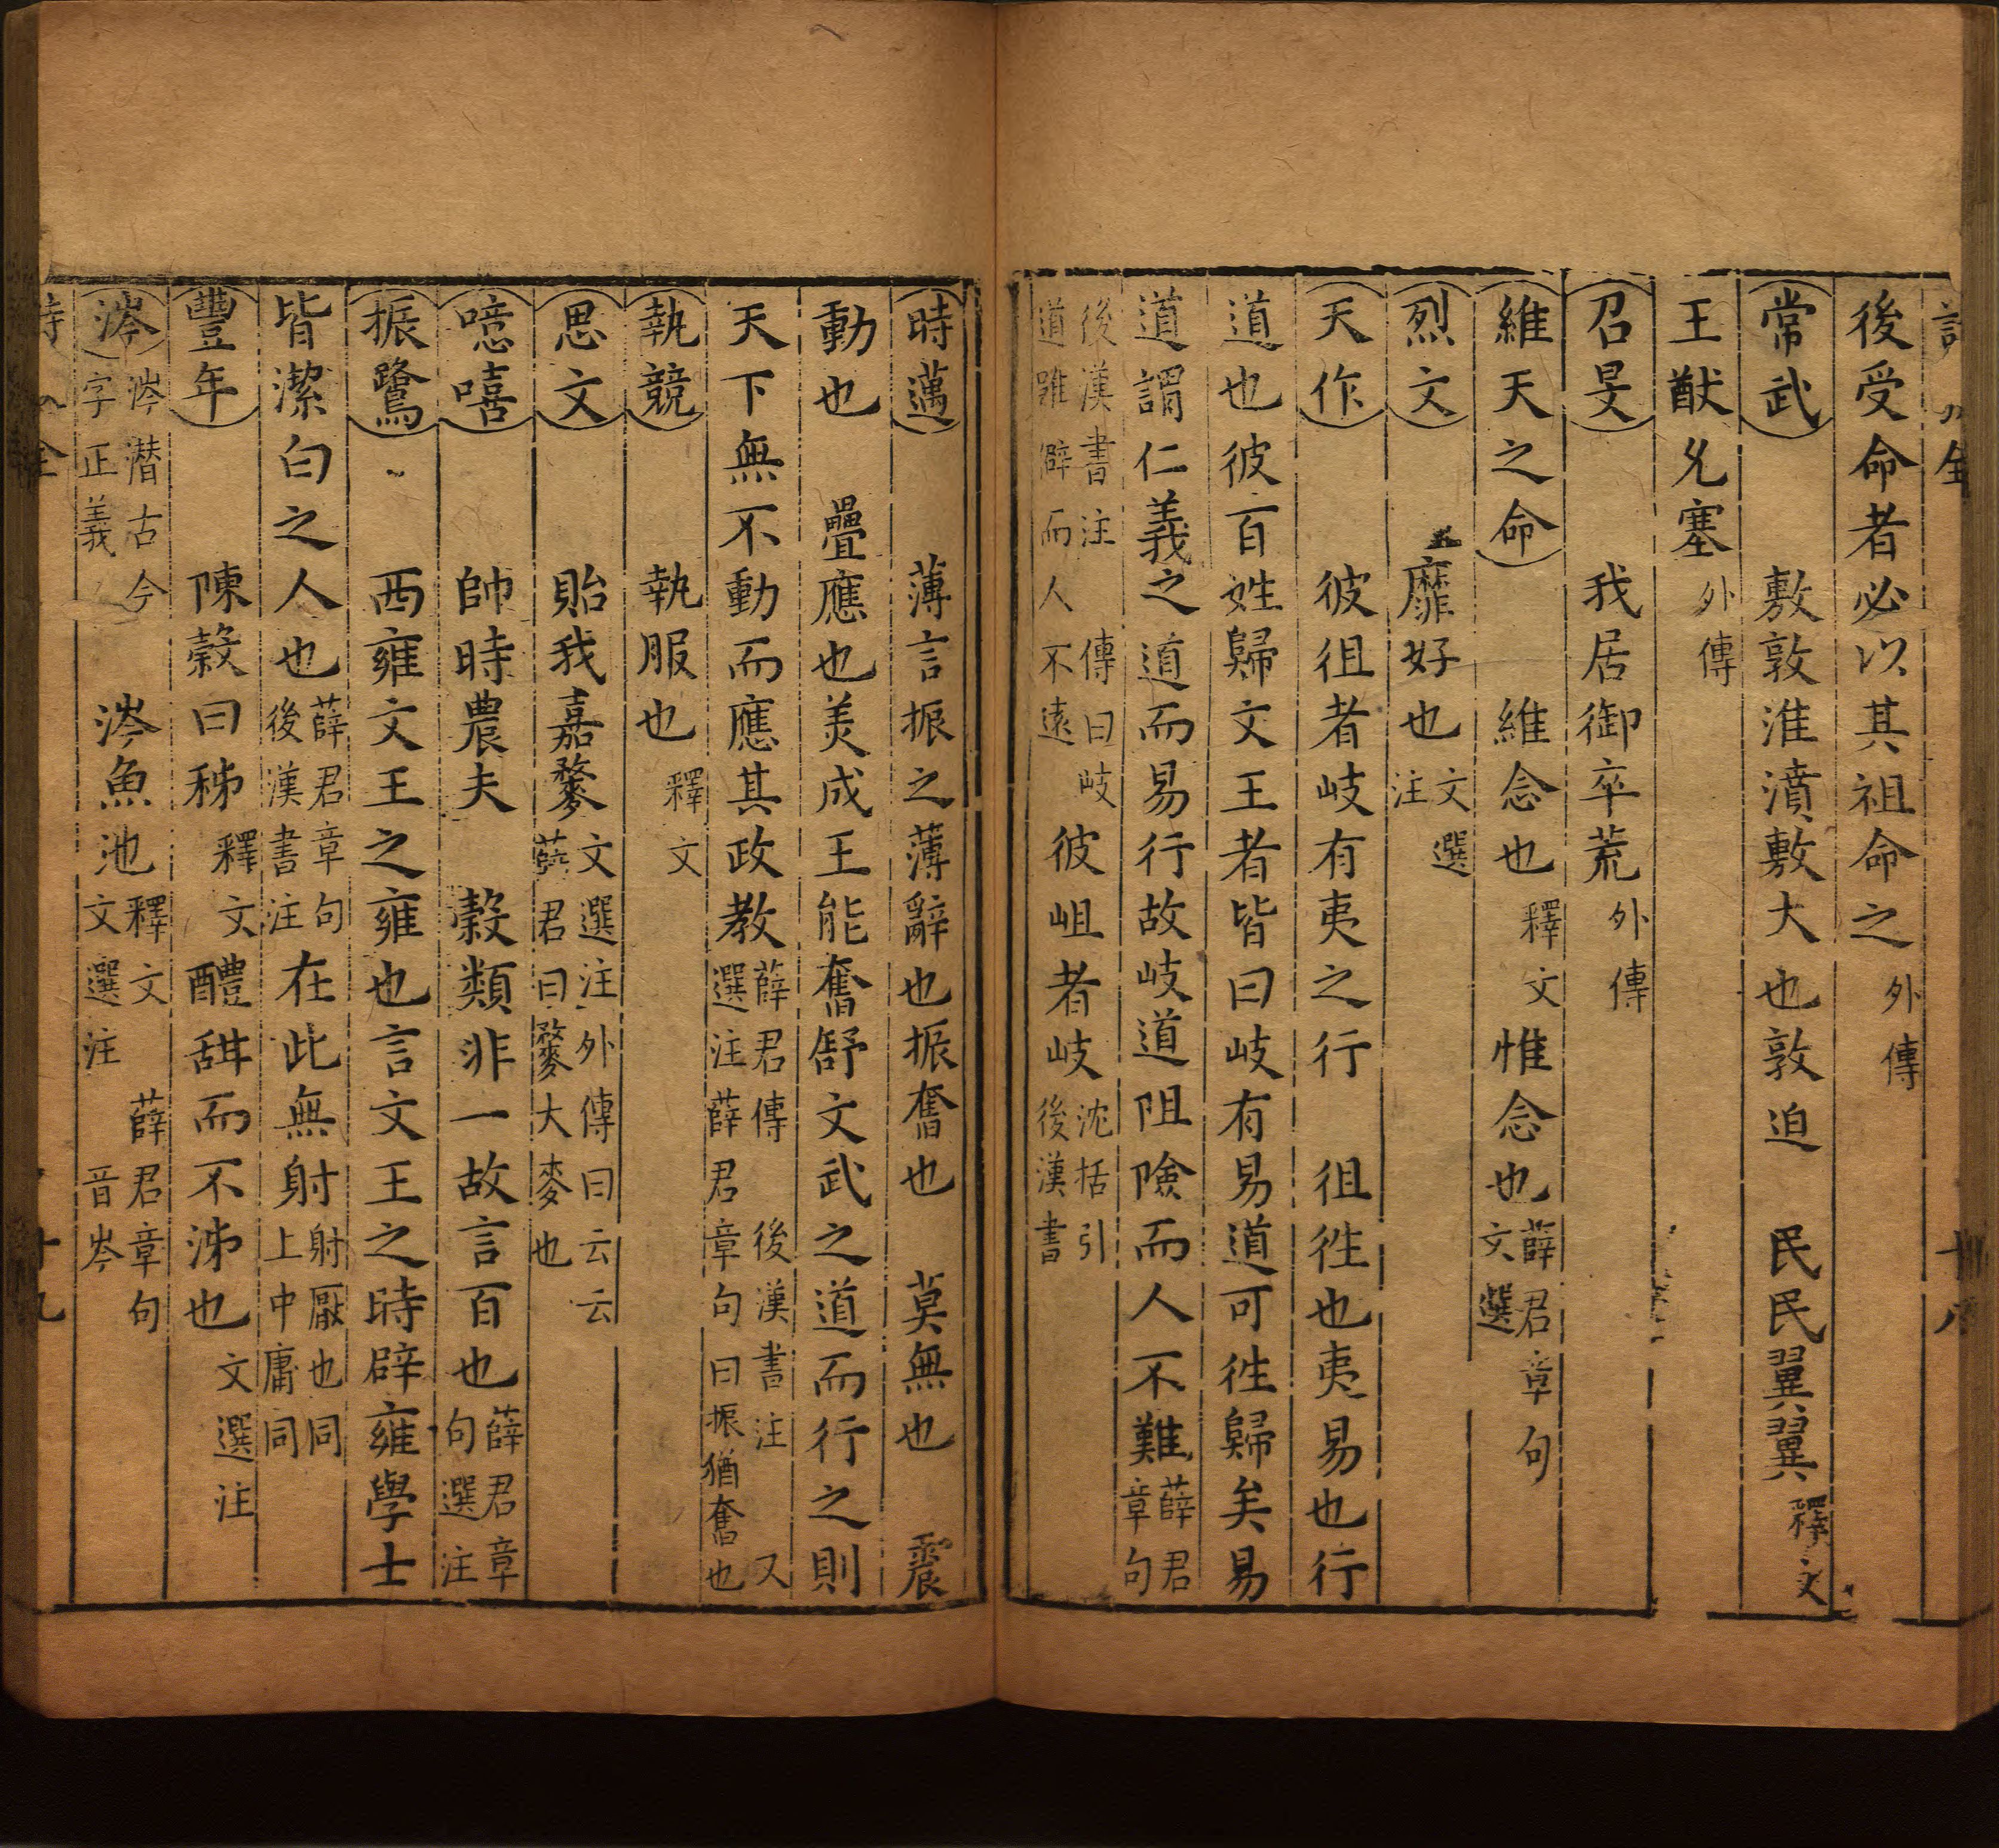 後受命者必以其祖命之外傳
常武　敷敦淮濆敷大也敦迫　民民翼翼釋文
王猷允塞外傳
召旻　我居御卒荒外傳
維天之命　維念也釋文惟念也薛君章句文選
烈文　靡好也文選注
天作　彼徂者岐有夷之行　徂徃也夷易也行
道也彼百姓歸文王者皆曰岐有易道可徃歸矣易
道謂仁義之道而易行故岐道阻險而人不難薛君章句
後漢書注　傳曰岐道雖僻而人不遠彼岨者岐沈括引後漢書
時邁　薄言振之薄辭也振奮也　莫無也　震
動也　疊應也美成王能奮舒文武之道而行之則
天下無不動而應其政教薛君傳　後漢書注　又選注薛君章句曰振猶奮也
執競　執服也釋文
思文　貽我嘉麰文選注外傳曰云云薛君曰麰大麥也
噫嘻　帥時農夫　穀類非一故言百也薛君章句選注
振鷺　西雍文王之雍也言文王之時辟雍學士
皆潔白之人也薛君章句後漢書注在此無射射厭也同上中庸同
豐年　陳穀曰秭釋文　醴甜而不泲也文選注
涔涔潜古今字正義　涔魚池釋文　薛君章句文選注　音岑